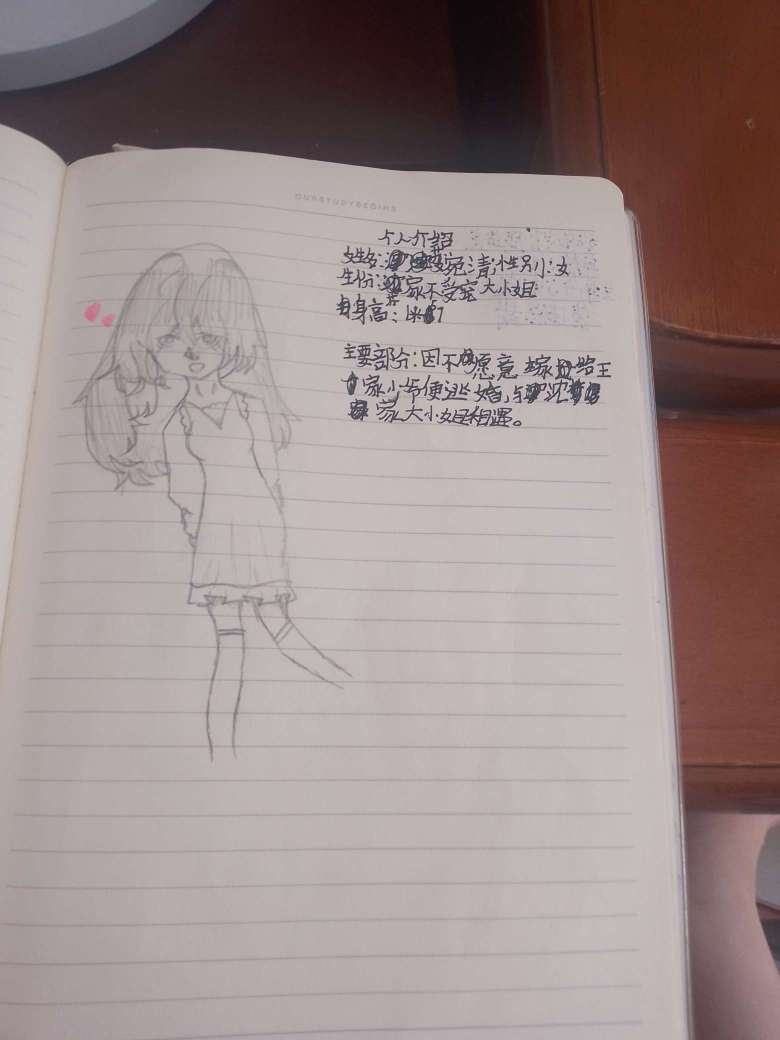 OURSTUDYBEGINS
个人介绍
姓名:宛清,性别:女
生份:家不受宠大小姐
身高:1米67
主要部分:因不愿意嫁给王
家少爷便逃婚,与沈
家大小姐相遇。